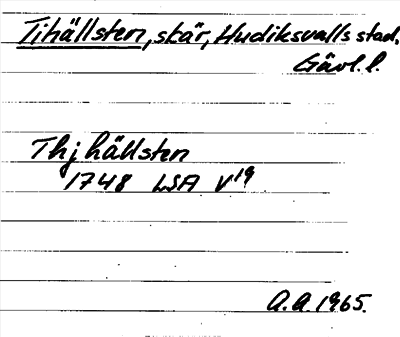 Tihällsten, skär, Hudiksvalls stad,
Gävl. l.
Thj hällsten
1748 LSA V19
A.A. 1965.